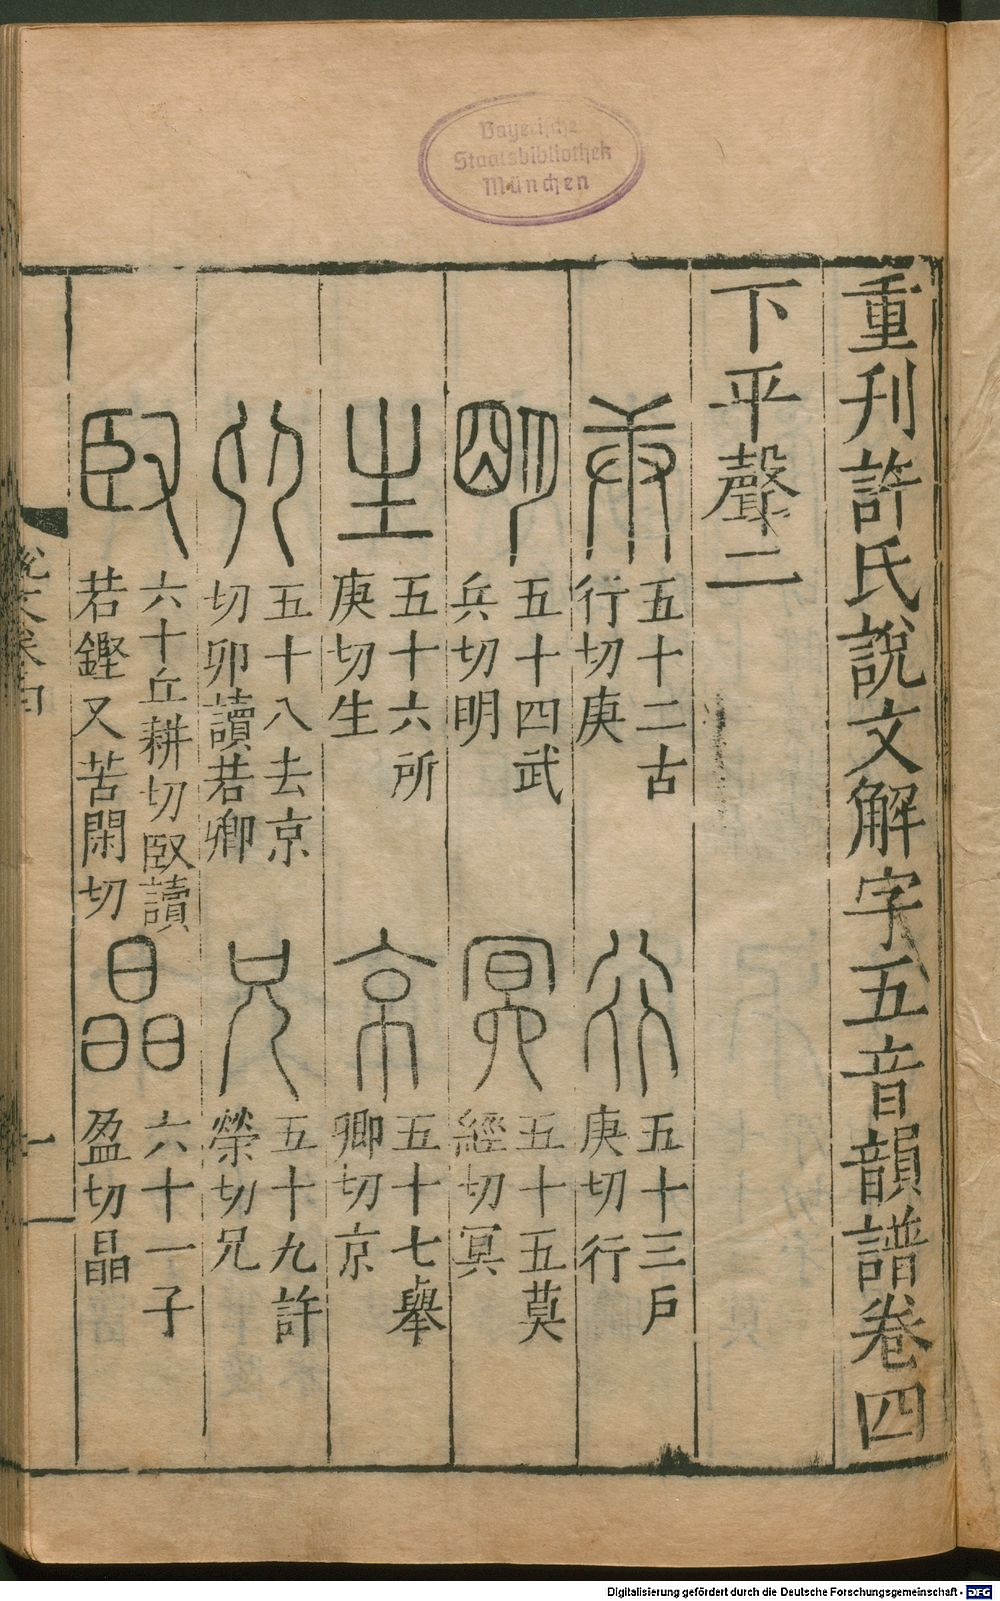 Bayerische
Staatsbibliothek
München
重刋許氏說文解字五音韻譜卷四
下平聲二
五十二古
行切庚
五十三戶
庚切行
五十四武
兵切明
五十五莫
經切冥
五十六所
庚切生
五十七舉
卿切京
五十八去京
切卯讀若卿
五十九許
榮切兄
六十丘耕切臤讀
若鏗又苦閑切
六十一子
盈切晶
說文卷四
一
Digitalisierung gefördert durch die Deutsche Forschungsgemeinschaft - DFG